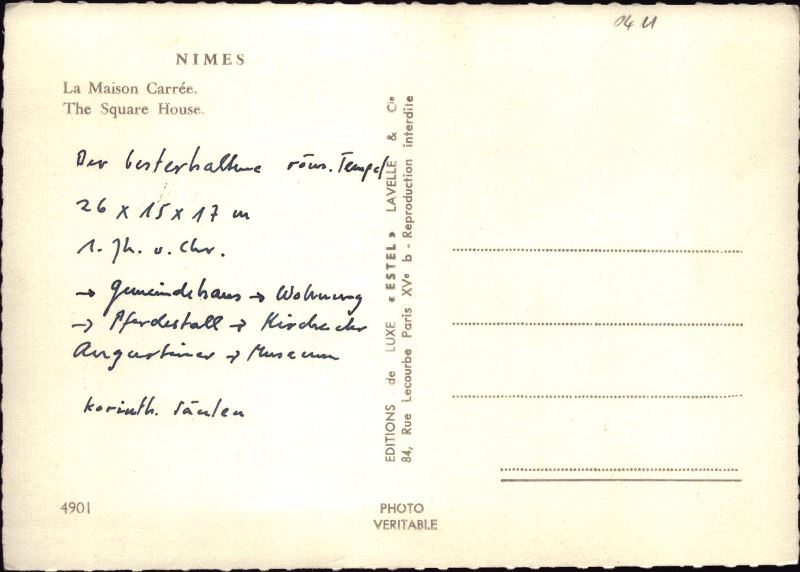 04 11
NIMES
La Maison Carrée.
The Square House.
Der besterhaltene röm. Tempel
26 x 15 x 17 m
1. Jh. v. Chr.
→ Gemeindehaus → Wohnung
→ Pferdestall → Kirche der
Augustiner → Museum
korinth. Säulen
4901
EDITIONS de LUXE «ESTEL» LAVELLE & Cie
84, Rue Lecourbe Paris XVe b - Reproduction interdite
PHOTO
VERITABLE